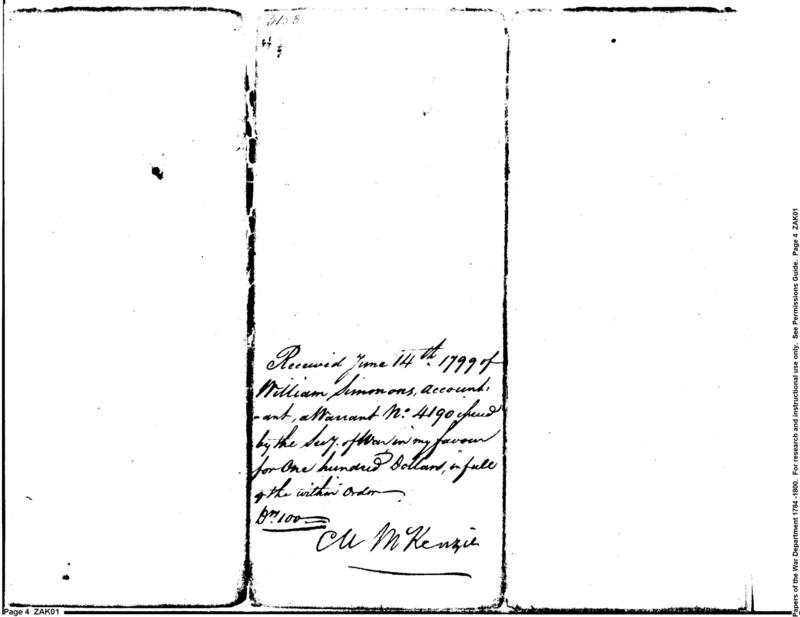 3155
Received June 14th. 1799 of
William Simmons, Account:
-ant, a Warrant No. 4190 issued
by the Secy. of War in my favour
for One hundred Dollars, in full
of the within Order
Drs. 100
M McKenzie
Page 4 ZAK01
Papers of the War Department 1784 -1800. For research and instructional use only. See Permissions Guide. Page 4 ZAK01